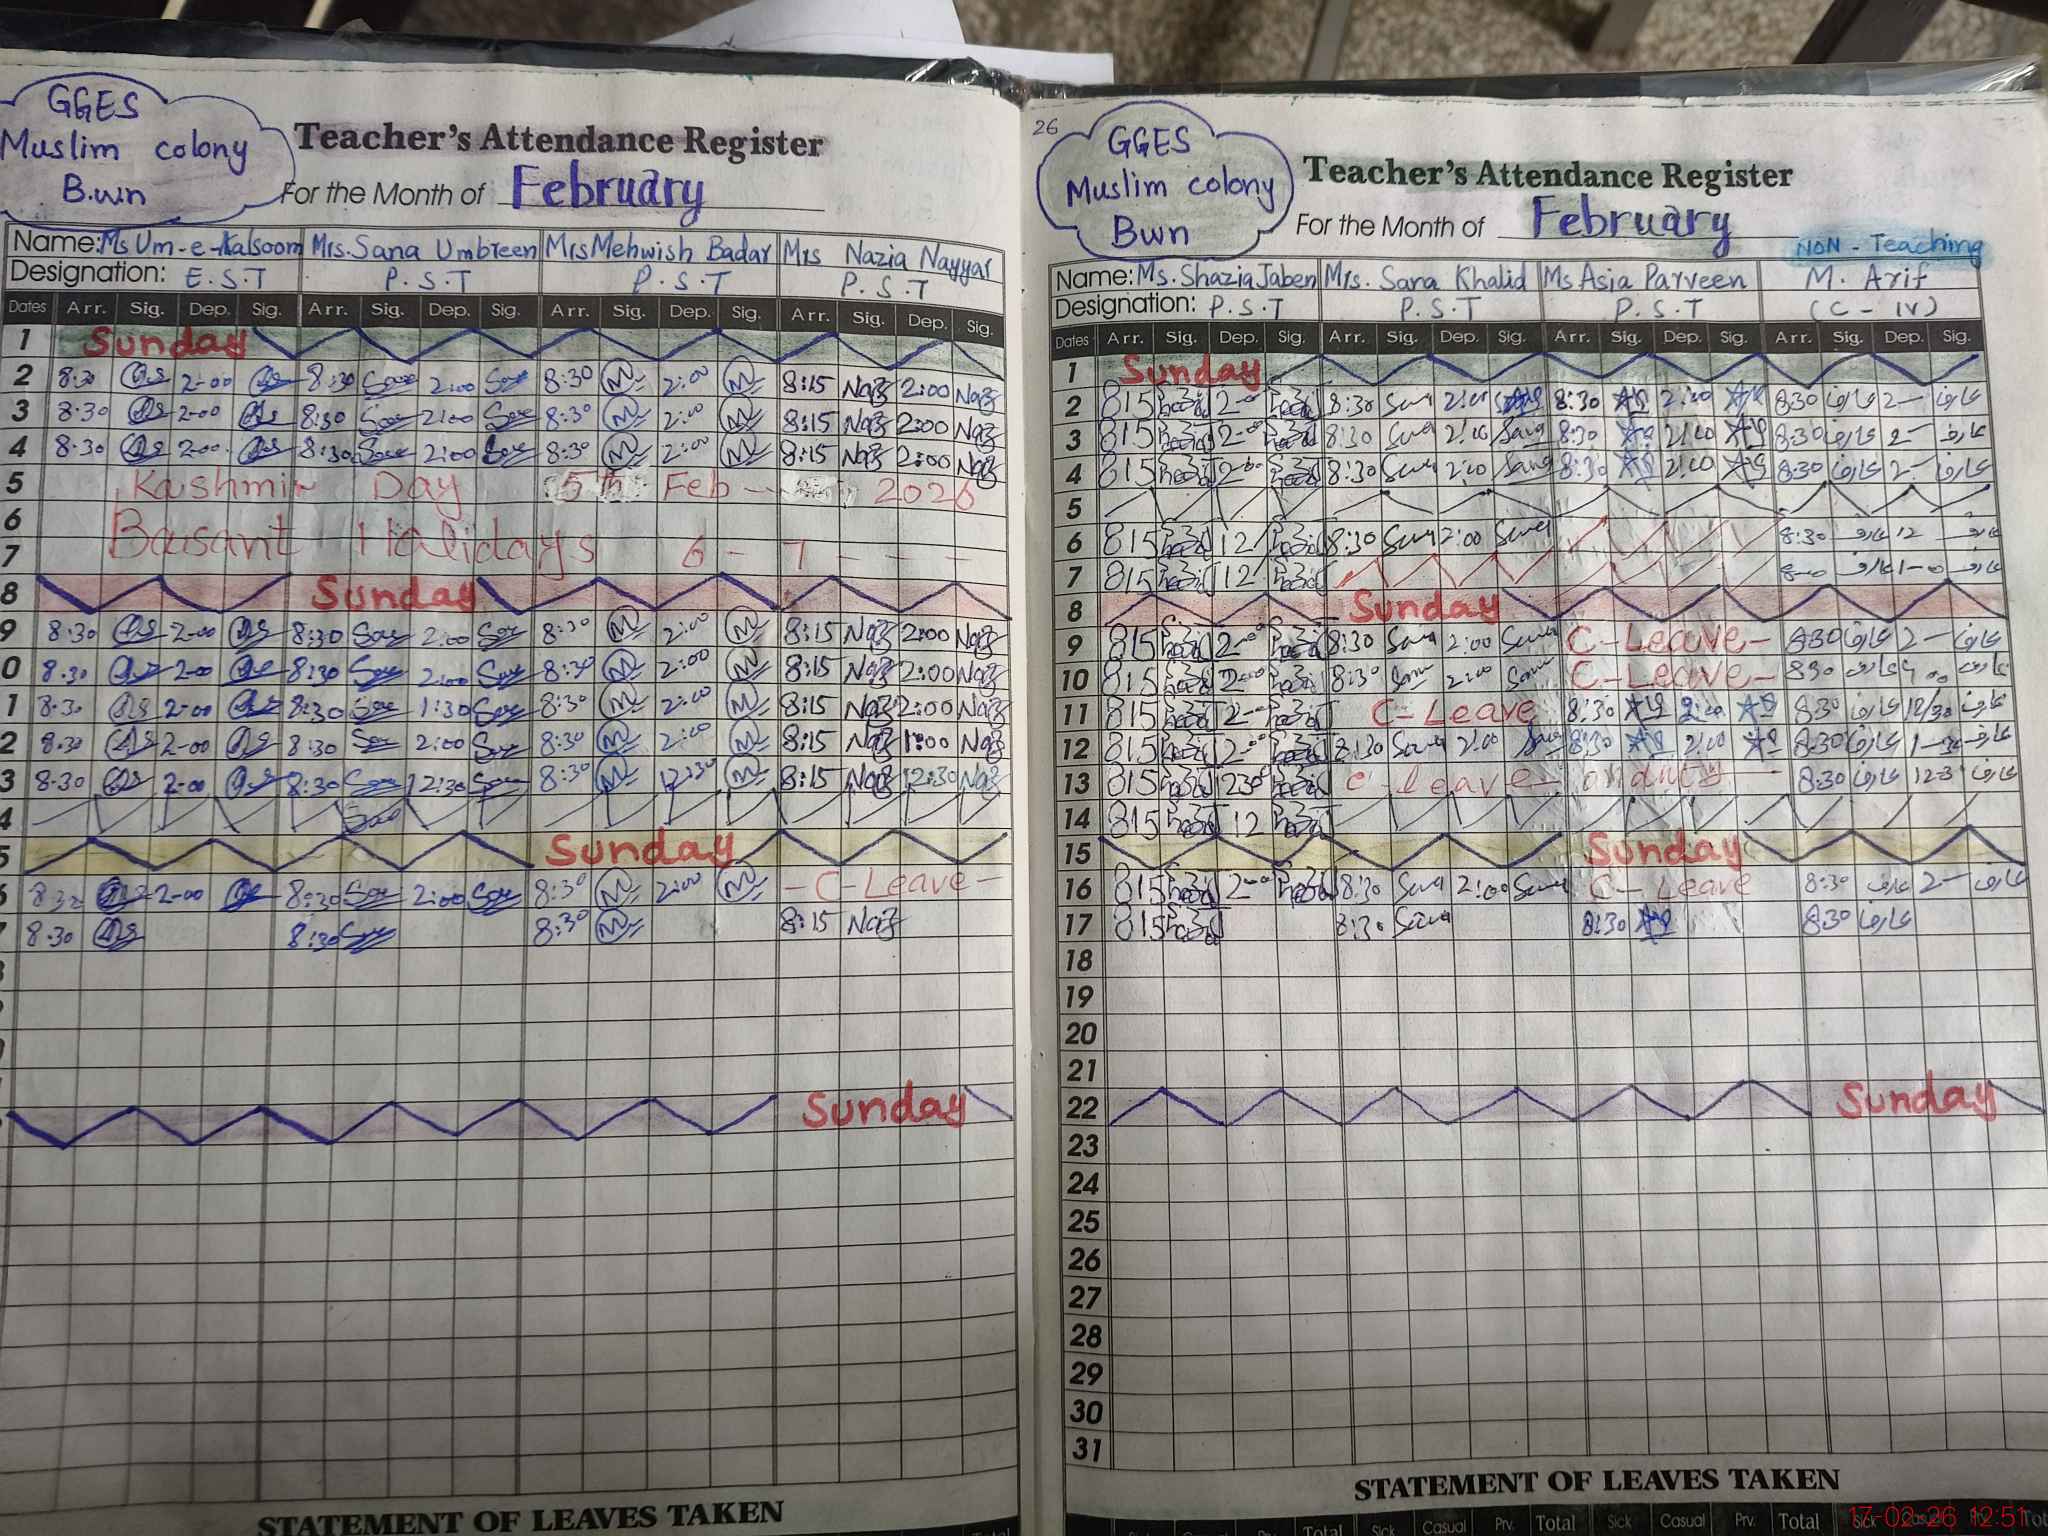 GGES
Muslim colony
B.wn
Teacher's Attendance Register
For the Month of February
Name: Ms Um-e-Kalsoom Mrs. Sana Umbreen Mrs Mehwish Badar Mrs Nazia Nayyar
Designation: E.S.T P.S.T P.S.T P.S.T
Dates Arr. Sig. Dep. Sig. Arr. Sig. Dep. Sig. Arr. Sig. Dep. Sig. Arr. Sig. Dep. Sig.
1 Sunday
2 8:30 2-00 8:30 2:00 8:30 2:00 8:15 Naz 2:00 Naz
3 8:30 2-00 8:30 2:00 8:30 2:00 8:15 Naz 2:00 Naz
4 8:30 2-00 8:30 2:00 8:30 2:00 8:15 Naz 2:00 Naz
5 Kashmir Day 5th Feb 2026
6 Basant Holidays 6 - 7 - - -
7
8 Sunday
9 8:30 2-00 8:30 2:00 8:30 2:00 8:15 Naz 2:00 Naz
0 8:30 2-00 8:30 2:00 8:30 2:00 8:15 Naz 2:00 Naz
1 8:30 2-00 8:30 1:30 8:30 2:00 8:15 Naz 2:00 Naz
2 8:30 2-00 8:30 2:00 8:30 2:00 8:15 Naz 1:00 Naz
3 8:30 2-00 8:30 12:30 8:30 12:30 8:15 Naz 12:30 Naz
4
5 Sunday
6 8:30 2-00 8:30 2:00 8:30 2:00 - C-Leave -
8:30 8:30 8:30 8:15 Naz
Sunday
STATEMENT OF LEAVES TAKEN
26
GGES
Muslim colony
Bwn
Teacher's Attendance Register
For the Month of February
NON - Teaching
Name: Ms. Shazia Jaben Mrs. Sara Khalid Ms Asia Parveen M. Arif
Designation: P.S.T P.S.T P.S.T (C - IV)
Dates Arr. Sig. Dep. Sig. Arr. Sig. Dep. Sig. Arr. Sig. Dep. Sig. Arr. Sig. Dep. Sig.
1 Sunday
2 815 2-00 8:30 Sara 2:00 8:30 2:00 8:30 عارف 2- عارف
3 815 2-00 8:30 Sara 2:00 Sara 8:30 2:00 8:30 عارف 2- عارف
4 815 2-00 8:30 Sara 2:00 Sara 8:30 2:00 8:30 عارف 2- عارف
5
6 815 12 8:30 Sara 2:00 Sara 8:30 عارف 12 عارف
7 815 12 عارف 1-0 عارف
8 Sunday
9 815 2-00 8:30 Sara 2:00 Sara C-Leave - 8:30 عارف 2- عارف
10 815 2-00 8:30 Sara 2:00 Sara C-Leave - 830 عارف عارف
11 815 2-00 C-Leave 8:30 2:00 830 عارف 12/30 عارف
12 815 2-00 8:30 Sara 2:00 Sara 8:30 2:00 8:30 عارف 1-30 عارف
13 815 230 C-leave on duty - 8:30 عارف 12-3 عارف
14 815 12
15 Sunday
16 815 2-00 8:30 Sara 2:00 Sara C-Leave 8:30 عارف 2- عارف
17 815 8:30 Sara 8:30 830 عارف
18
19
20
21
22 Sunday
23
24
25
26
27
28
29
30
31
STATEMENT OF LEAVES TAKEN
Total Sick Casual Prv. Total Sick Casual Prv. Total Sick Casual Prv. Tot
17-02-26 12:51